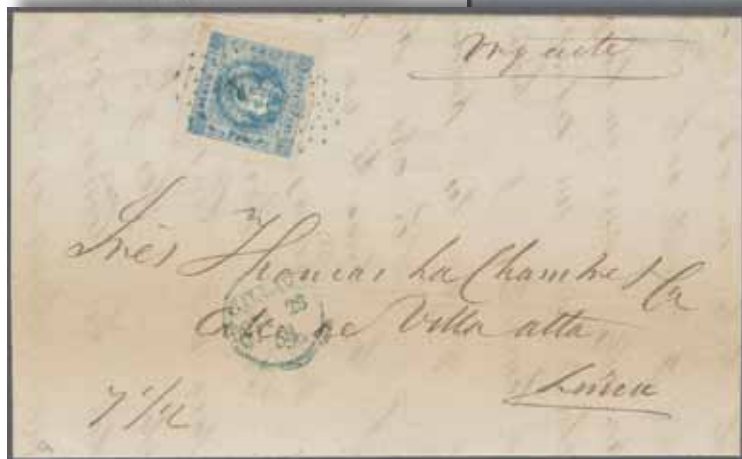 Urgente
Sres Thomas La Chambre & Ca
Calle de Villa alta
Lima
7 1/2